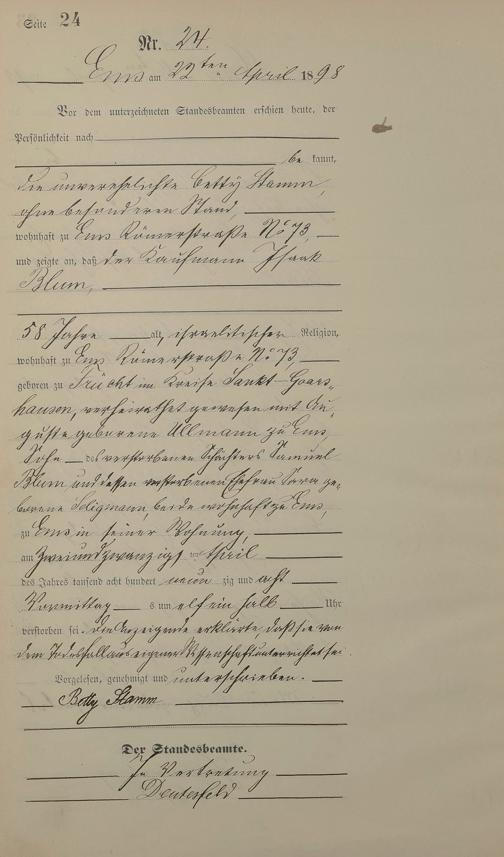 Seite 24
Nr. 24.
Ems am 22ten April 1898
Vor dem unterzeichneten Standesbeamten erschien heute, der
Persönlichkeit nach
be kannt,
die unverehelichte Betty Stamm,
ohne besonderen Stand,
wohnhaft zu Ems Römerstraße No 73,
und zeigte an, daß der Kaufmann Isaak
Blum,
58 Jahre alt, israelitischer Religion,
wohnhaft zu Ems Römerstraße No 73,
geboren zu im Kreise Sankt-Goars-
hausen, verheirathet gewesen mit Au-
guste geborene Ullmann zu Ems,
Sohn des verstorbenen Schächters Samuel
Blum und dessen verstorbenen Ehefrau Sara ge-
borene Seligmann, beide wohnhaft zu Ems,
zu Ems in seiner Wohnung,
am Zweiundzwanzigsten April
des Jahres tausend acht hundert neun zig und acht
Vormittag s um elf ein halb Uhr
verstorben sei. Die Anzeigende erklärte, daß sie von
dem Todesfall aus eigner Wissenschaft unterrichtet sei.
Vorgelesen, genehmigt und unterschrieben.
Betty Stamm
Der Standesbeamte.
In Vertretung